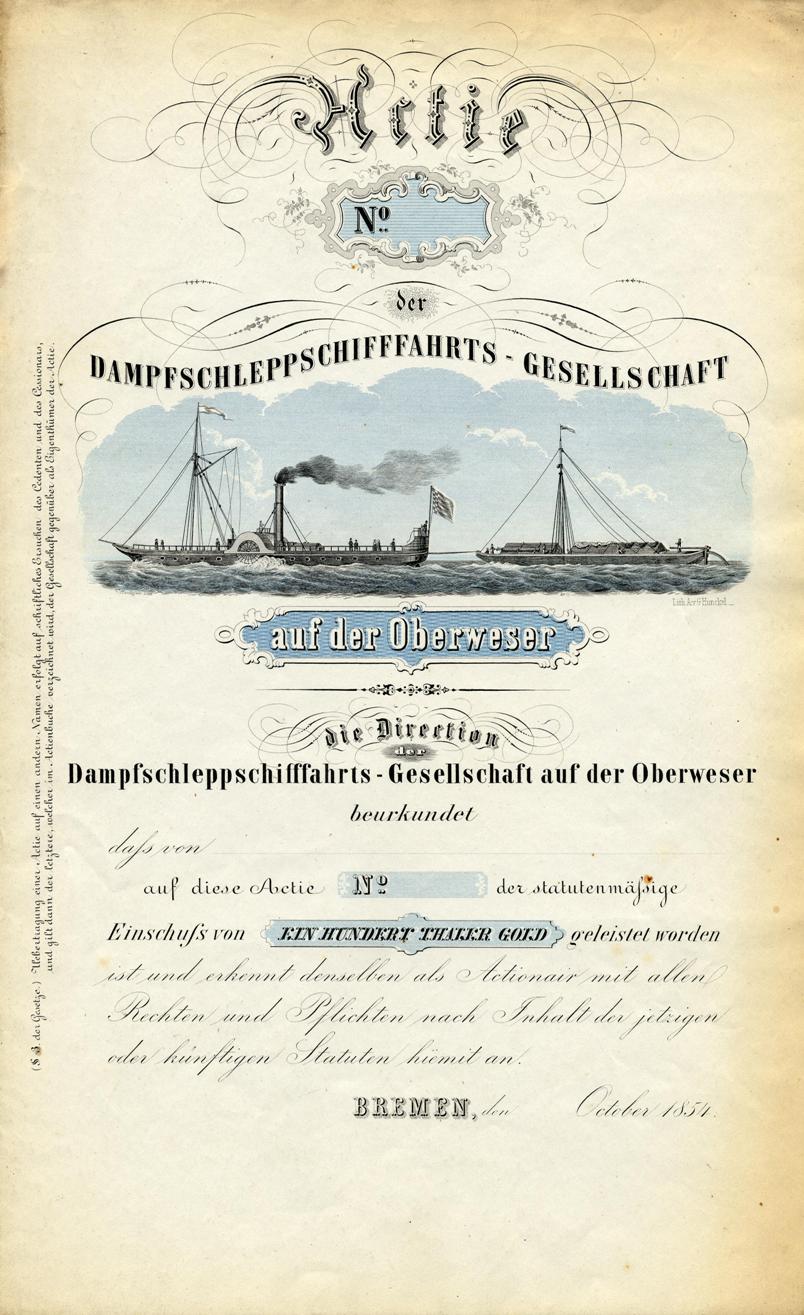 Actie
No.
der
DAMPFSCHLEPPSCHIFFFAHRTS - GESELLSCHAFT
Lith. Av. G Hunckel
auf der Oberweser
die Direction
der
Dampfschleppschifffahrts - Gesellschaft auf der Oberweser
beurkundet
daſs von
auf diese Actie No der statutenmäſsige
Einschuſs von EIN HUNDERT THALER GOLD geleistet worden
ist und erkennt denselben als Actionair mit allen
Rechten und Pflichten nach Inhalt der jetzigen
oder künftigen Statuten hiemit an.
BREMEN, den October 1854.
(§ 3. der Gesetze.) Uebertragung einer Actie auf einen andern Namen erfolgt auf schriftliches Ersuchen des Cedenten und des Cessionars,
und gilt dann der letztere, welcher im Actienbuche verzeichnet wird, der Gesellschaft gegenüber als Eigenthümer der Actie.